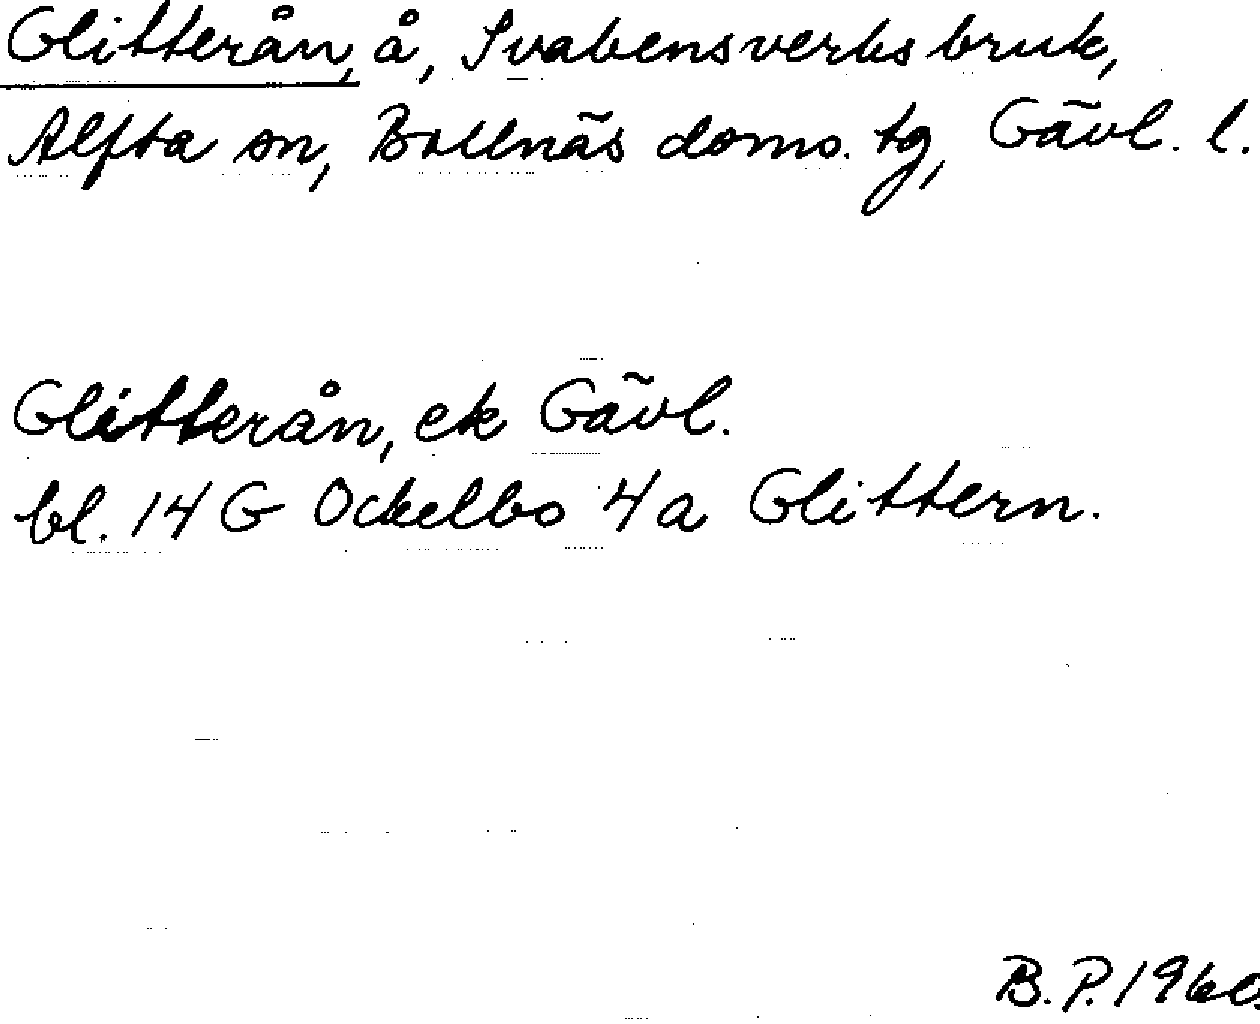 Glitterån, å, Svabensverks bruk,
Alfta sn, Bollnäs doms. tg, Gävl. l.
Glitterån, ek Gävl.
bl. 14 G Ockelbo 4a Glittern.
B. P. 1960